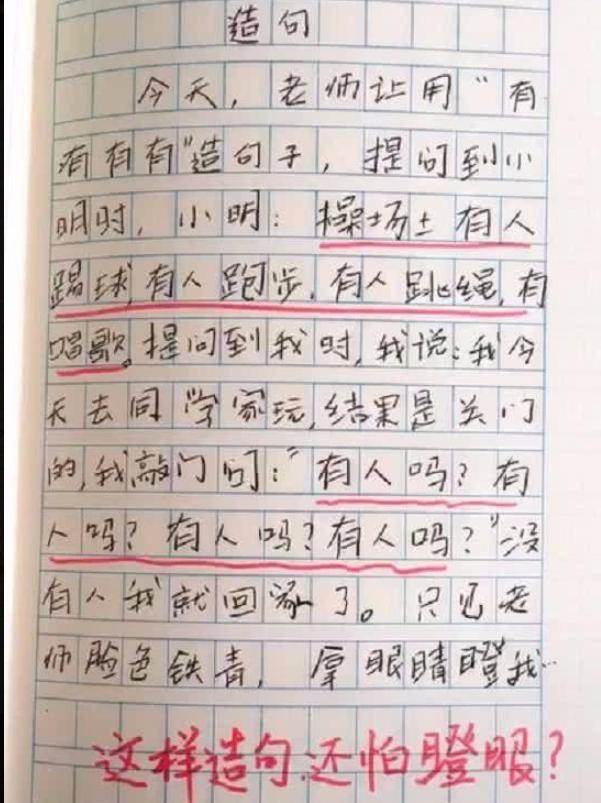 造句
今天，老师让用“有
有有有”造句子，提问到小
明时，小明：操场上有人
踢球，有人跑步，有人跳绳，有
唱歌。提问到我时，我说：我今
天去同学家玩，结果是关门
的，我敲门问：“有人吗？有
人吗？有人吗？有人吗？”没
有人我就回家了。只见老
师脸色铁青，拿眼睛瞪我…
这样造句，还怕瞪眼？